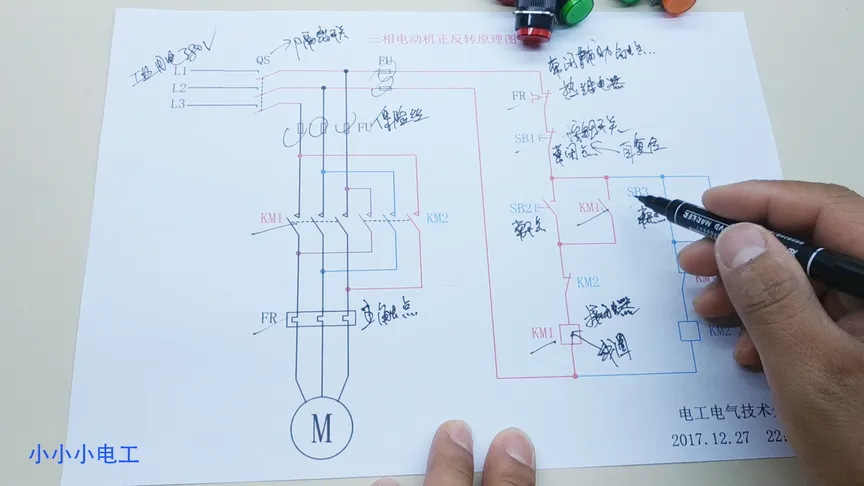 三相电动机正反转原理图
工业用电380V
QS
隔离开关
L1
L2
L3
FU
FU 保险丝
常闭辅助触点...
热继电器
FR
SB1
按钮开关
常闭点 自复位
KM1
KM2
SB2
常开点
KM1
SB3
常开点
KM2
FR
主触点
KM1
接触器
线圈
KM2
M
电工电气技术
2017.12.27 22:
小小小电工